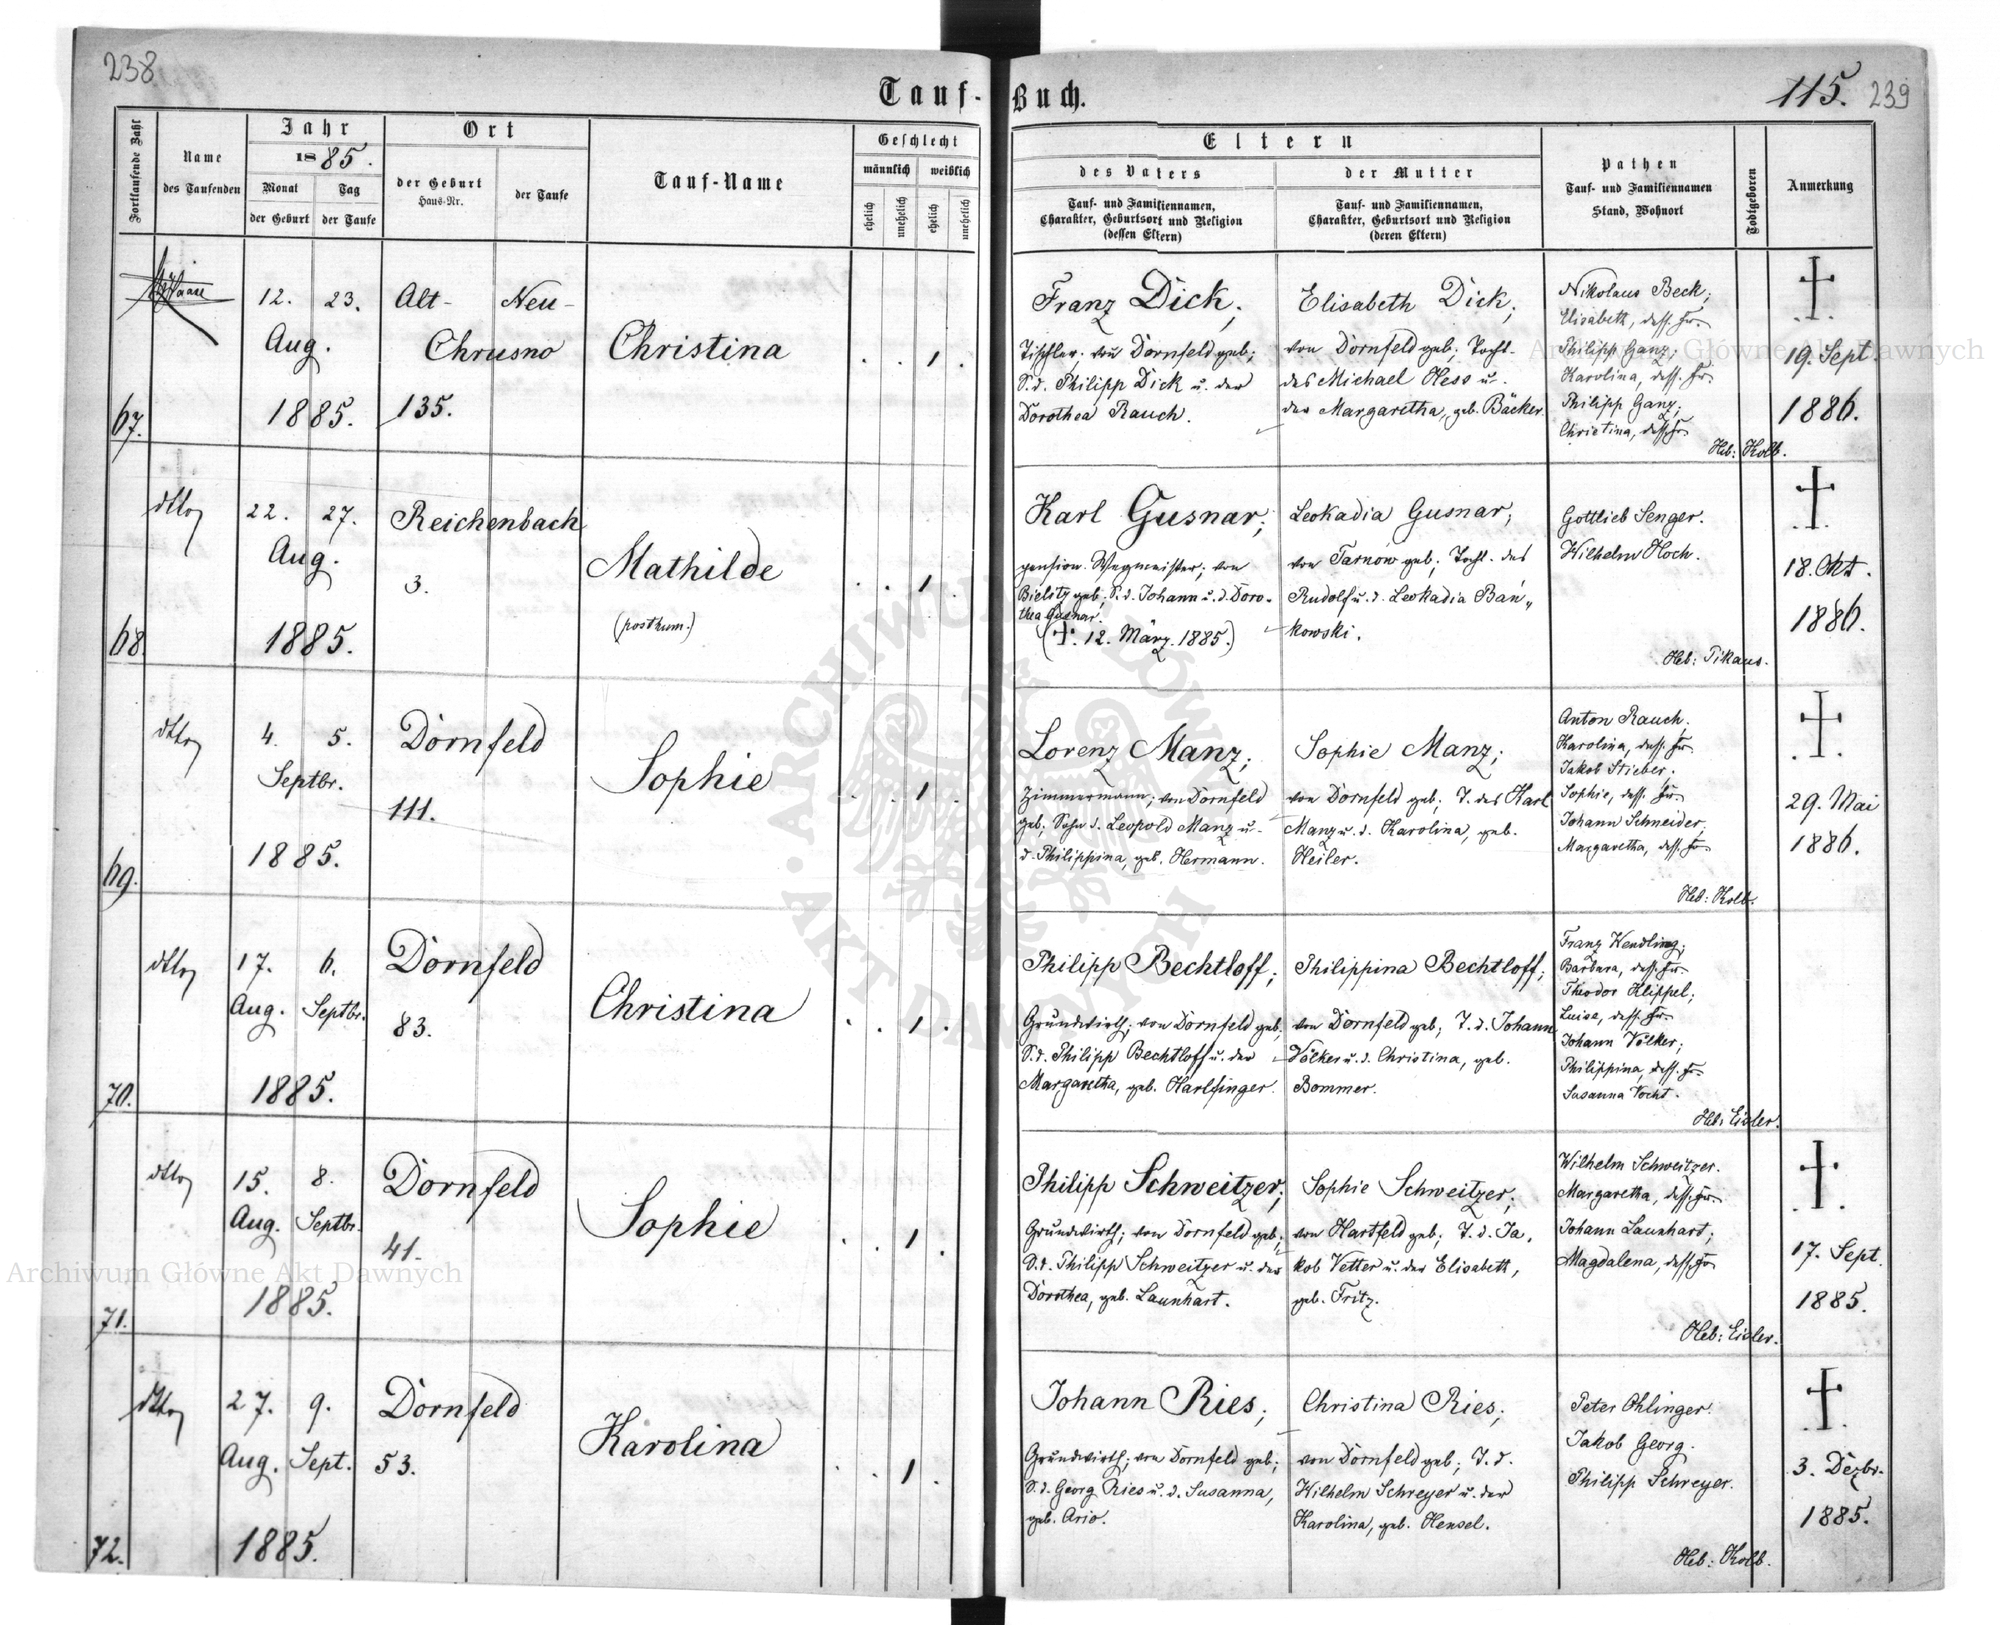 238
Tauf-Buch.
115. 239
Fortlaufende Zahl
Name
des Taufenden
Jahr
1885.
Monat
der Geburt
Tag
der Taufe
Ort
der Geburt
Haus-Nr.
der Taufe
Tauf-Name
Geschlecht
männlich
weiblich
ehelich
unehelich
ehelich
unehelich
Eltern
des Vaters
Tauf- und Familiennamen,
Charakter, Geburtsort und Religion
(dessen Eltern)
der Mutter
Tauf- und Familiennamen,
Charakter, Geburtsort und Religion
(deren Eltern)
Pathen
Tauf- und Familiennamen
Stand, Wohnort
Todtgeboren
Anmerkung
67.
12. 23.
Aug.
1885.
Alt- Neu-
Chrusno
135.
Christina
. . 1 .
Franz Dick,
Tischler, von Dornfeld geb;
S. d. Philipp Dick u. der
Dorothea Rauch.
Elisabeth Dick;
von Dornfeld geb; Tocht.
des Michael Hess u.
der Margaretha, geb. Bäcker.
Nikolaus Beck;
Elisabeth, dess. Fr.
Philipp Ganz;
Karolina, dess. Fr.
Philipp Ganz;
Christina, dess. Fr.
Heb: Kolb.
19. Sept
1886.
68.
dtto
22. 27.
Aug.
1885.
Reichenbach
3.
Mathilde
(posthum.)
. . 1 .
Karl Gusnar;
pension. Wegmeister; von
Bielitz geb; S. d. Johann u. d. Doro-
thea Gusnar.
(†. 12. März. 1885.)
Leokadia Gusnar;
von Tarnów geb; Tocht. des
Rudolf u. d. Leokadia Bań„
kowski.
Gottlieb Senger.
Wilhelm Hoch.
Heb: Pikaus.
18. Okt.
1886.
69.
dtto
4. 5.
Septbr.
1885.
Dornfeld
111.
Sophie
. . 1 .
Lorenz Manz;
Zimmermann; von Dornfeld
geb. Sohn d. Leopold Manz u.
d. Philippina, geb. Hermann.
Sophie Manz;
von Dornfeld geb; T. des Karl
Manz u. d. Karolina, geb.
Heiler.
Anton Rauch.
Karolina, dess. Fr.
Jakob Stieber.
Sophie, dess. Fr.
Johann Schneider,
Margaretha, dess. Fr.
Heb: Kolb.
29. Mai
1886.
70.
dtto
17. 6.
Aug. Septbr.
1885.
Dornfeld
83.
Christina
. . 1 .
Philipp Bechtloff;
Grundwirth; von Dornfeld geb;
S. d. Philipp Bechtloff u. der
Margaretha, geb. Harlfinger.
Philippina Bechtloff;
von Dornfeld geb; T. d. Johann
Völker u. d. Christina, geb.
Bommer.
Franz Wendling;
Barbara, dess. Fr.
Theodor Klippel;
Luise, dess. Fr.
Johann Völker;
Philippina, dess. Fr.
Susanna Vocht.
Heb: Eisler.
71.
dtto
15. 8.
Aug. Septbr.
1885.
Dornfeld
41.
Sophie
. . 1 .
Philipp Schweitzer;
Grundwirth; von Dornfeld geb;
S. d. Philipp Schweitzer u. der
Dorothea, geb. Launhart.
Sophie Schweitzer;
von Hartfeld geb; T. d. Ja-
kob Vetter u. der Elisabeth,
geb. Fritz.
Wilhelm Schweitzer.
Margaretha, dess. Fr.
Johann Launhart;
Magdalena, dess. Fr
Heb: Eisler.
17. Sept.
1885.
72.
dtto
27. 9.
Aug. Sept.
1885.
Dornfeld
53.
Karolina
. . 1 .
Johann Ries;
Grundwirth; von Dornfeld geb;
S. d. Georg Ries u. d. Susanna,
geb. Ario.
Christina Ries;
von Dornfeld geb; T. d.
Wilhelm Schreyer u. der
Karolina, geb. Hensel.
Peter Ohlinger.
Jakob Georg.
Philipp Schreyer.
Heb: Kolb.
3. Dezbr.
1885.
Archiwum Główne Akt Dawnych
Archiwum Główne Akt Dawnych
ARCHIWUM GŁÓWNE AKT DAWNYCH